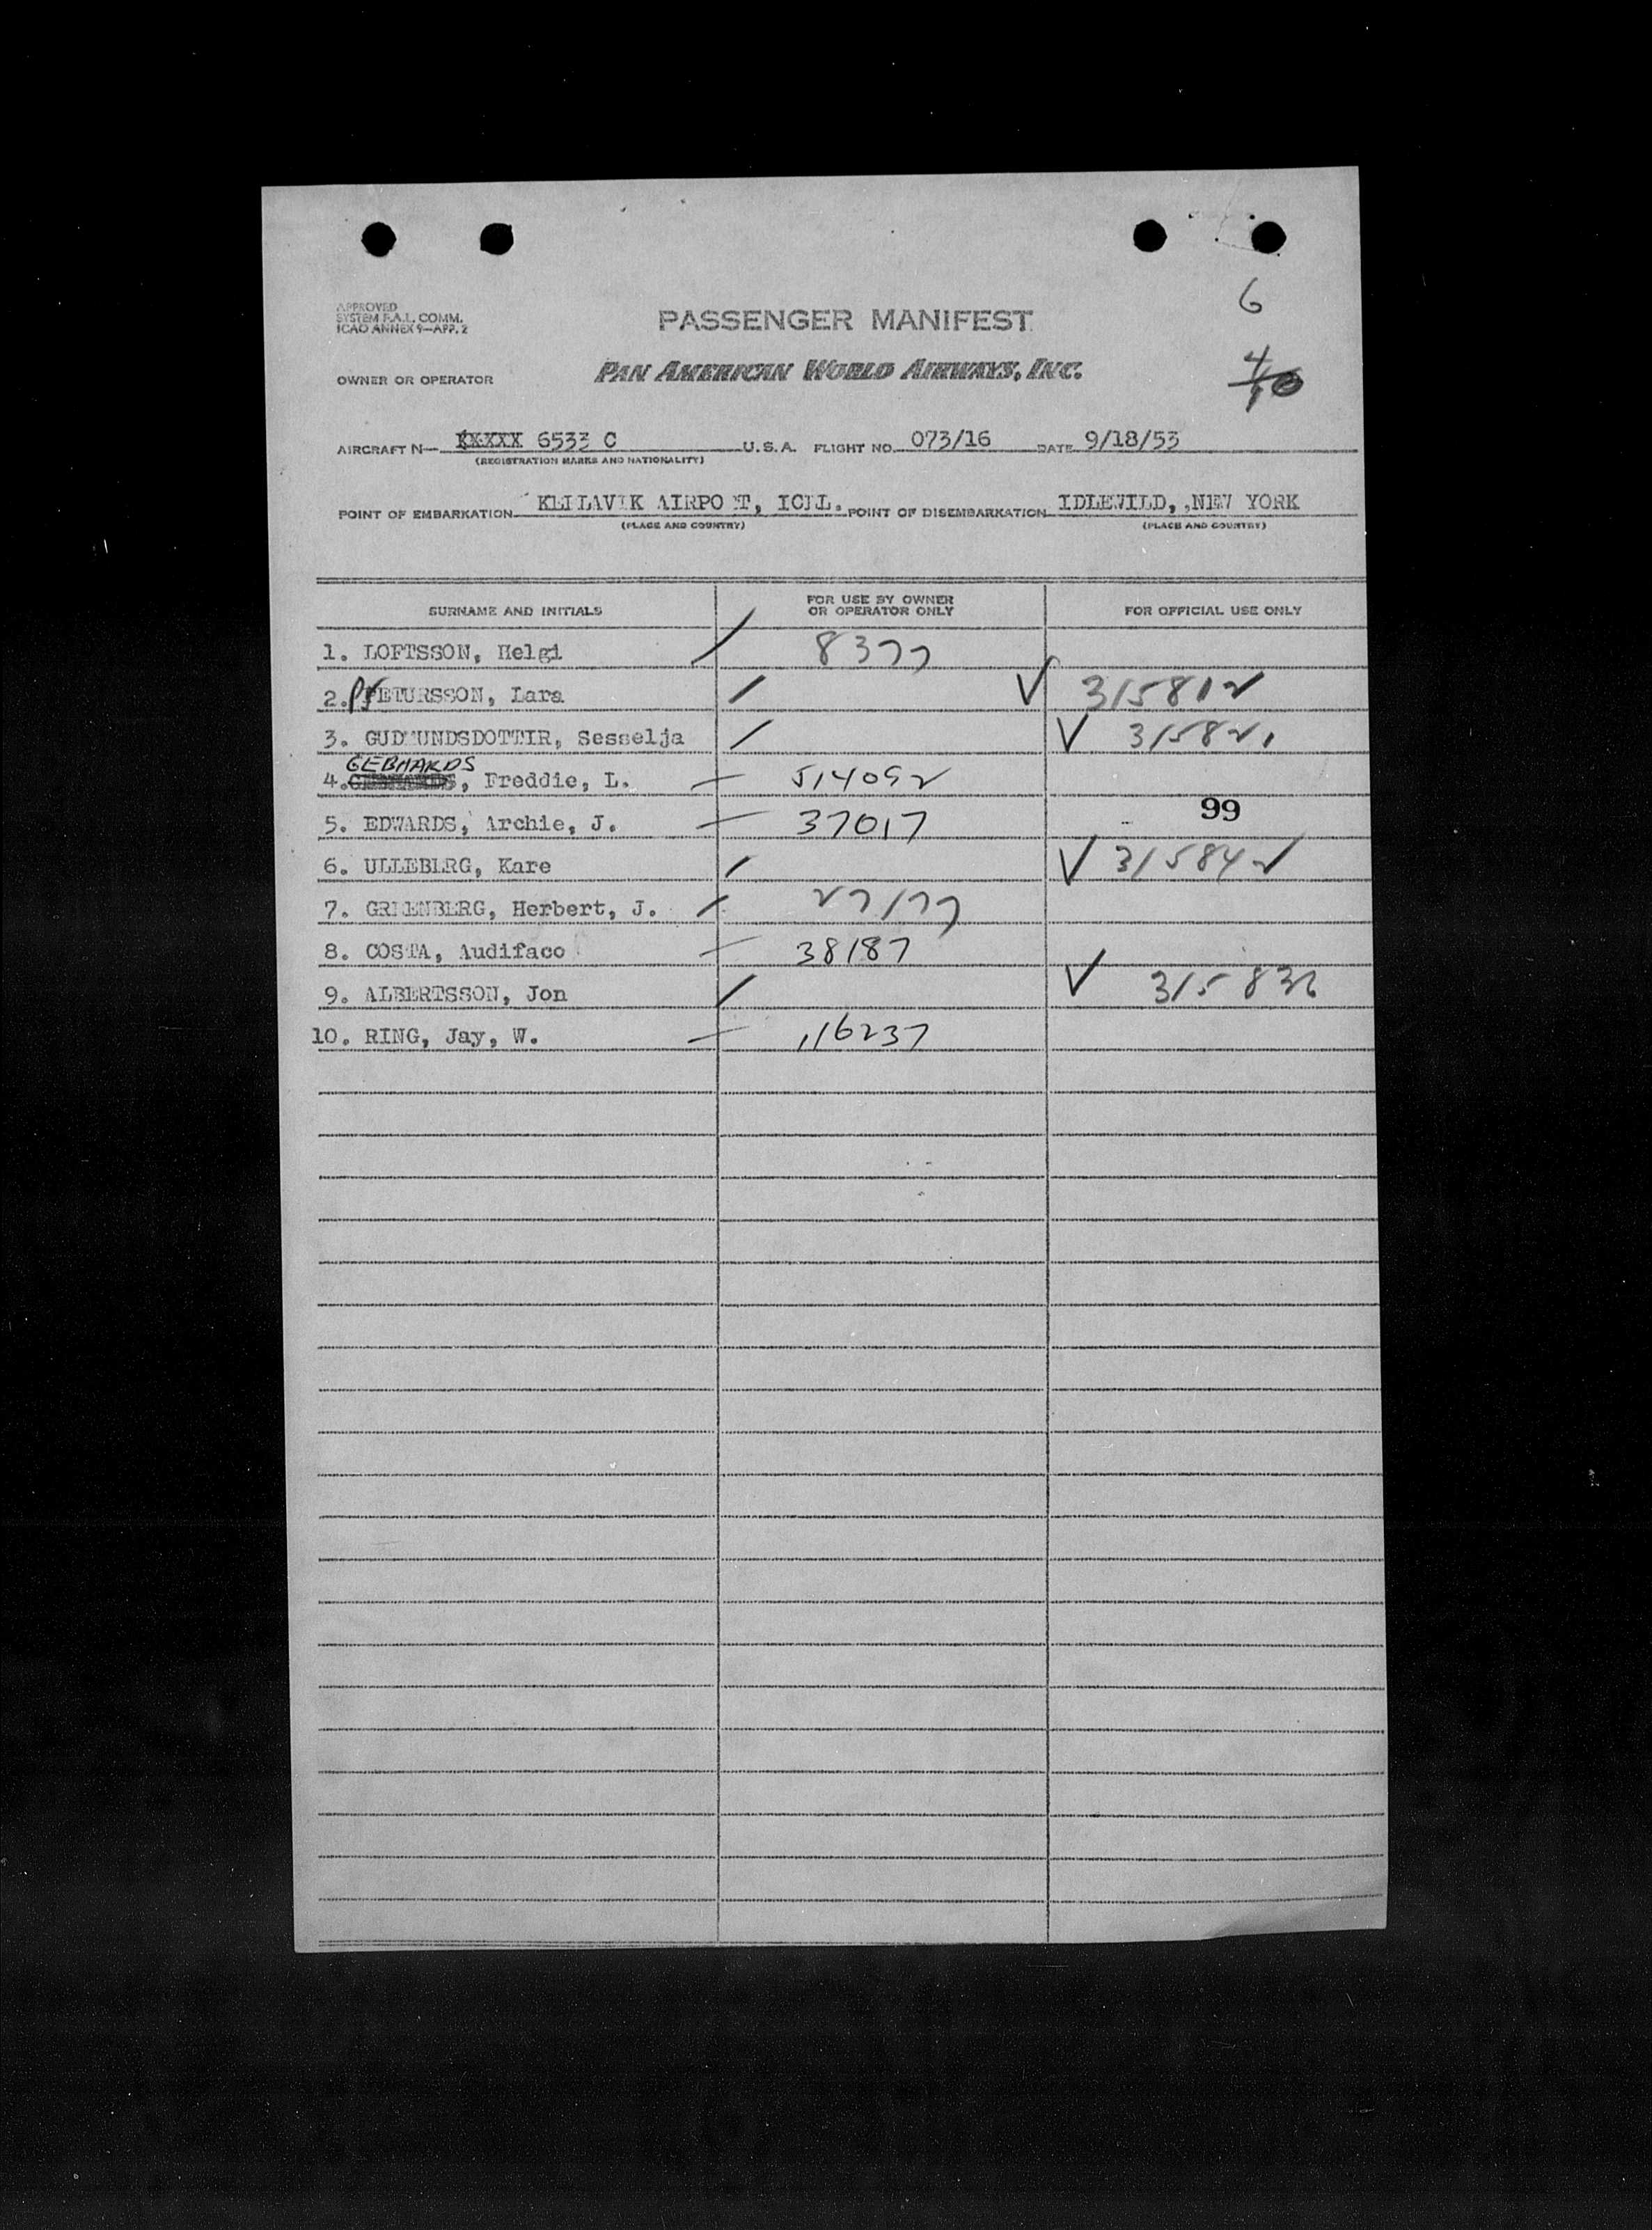 6
APPROVED
SYSTEM F.A.L. COMM.
ICAO ANNEX 9—APP. 2
PASSENGER MANIFEST
4/10
OWNER OR OPERATOR
PAN AMERICAN WORLD AIRWAYS, INC.
AIRCRAFT N— XXXXX 6533 C U.S.A. FLIGHT NO. 073/16 DATE 9/18/53
(REGISTRATION MARKS AND NATIONALITY)
POINT OF EMBARKATION KEFLAVIK AIRPORT, ICEL. POINT OF DISEMBARKATION IDLEWILD, ,NEW YORK
(PLACE AND COUNTRY) (PLACE AND COUNTRY)
SURNAME AND INITIALS FOR USE BY OWNER OR OPERATOR ONLY FOR OFFICIAL USE ONLY
1. LOFTSSON, Helgi / 8377
2. PETURSSON, Lara / √ 315812
3. GUDMUNDSDOTTIR, Sesselja / √ 315821
GEBHARDS
4. , Freddie, L. — 514092
99
5. EDWARDS, Archie, J. — 37017
6. ULLEBERG, Kare / √ 315842
7. GREENBERG, Herbert, J. / 27177
8. COSTA, Audifaco — 38187
9. ALBERTSSON, Jon / √ 315832
10. RING, Jay, W. — 116237